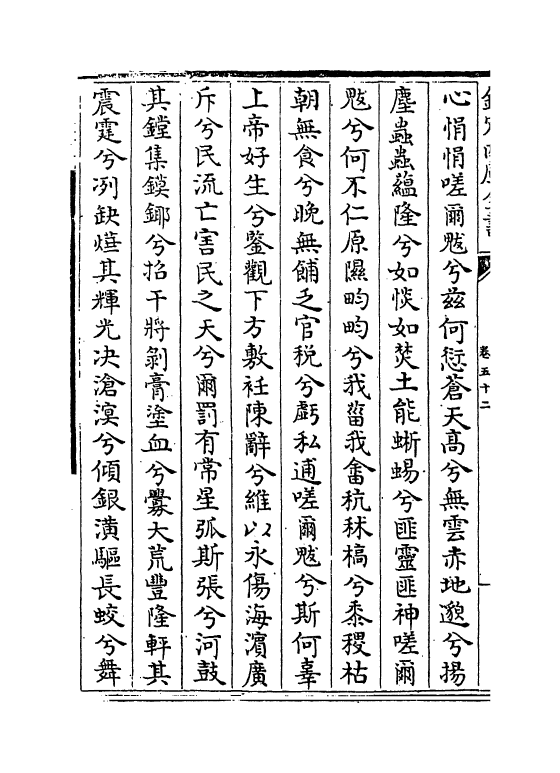 欽定四庫全書
卷五十二
心悁悁嗟爾魃兮兹何愆蒼天髙兮無雲赤地邈兮揚
塵蟲蟲蘊隆兮如惔如焚土龍蜥蜴兮匪靈匪神嗟爾
魃兮何不仁原隰畇畇兮我菑我畬秔秫槁兮黍稷枯
朝無食兮晩無餔乏官税兮虧私逋嗟爾魃兮斯何辜
上帝好生兮鑒觀下方敷衽陳辭兮維以永傷海濵廣
斥兮民流亡害民之天兮爾罰有常星弧斯張兮河鼓
其鏜集鏌鎁兮招干將剝膏塗血兮釁大荒豐隆軯其
震霆兮冽缺爗其輝光决滄溟兮傾銀潢驅長蛟兮舞